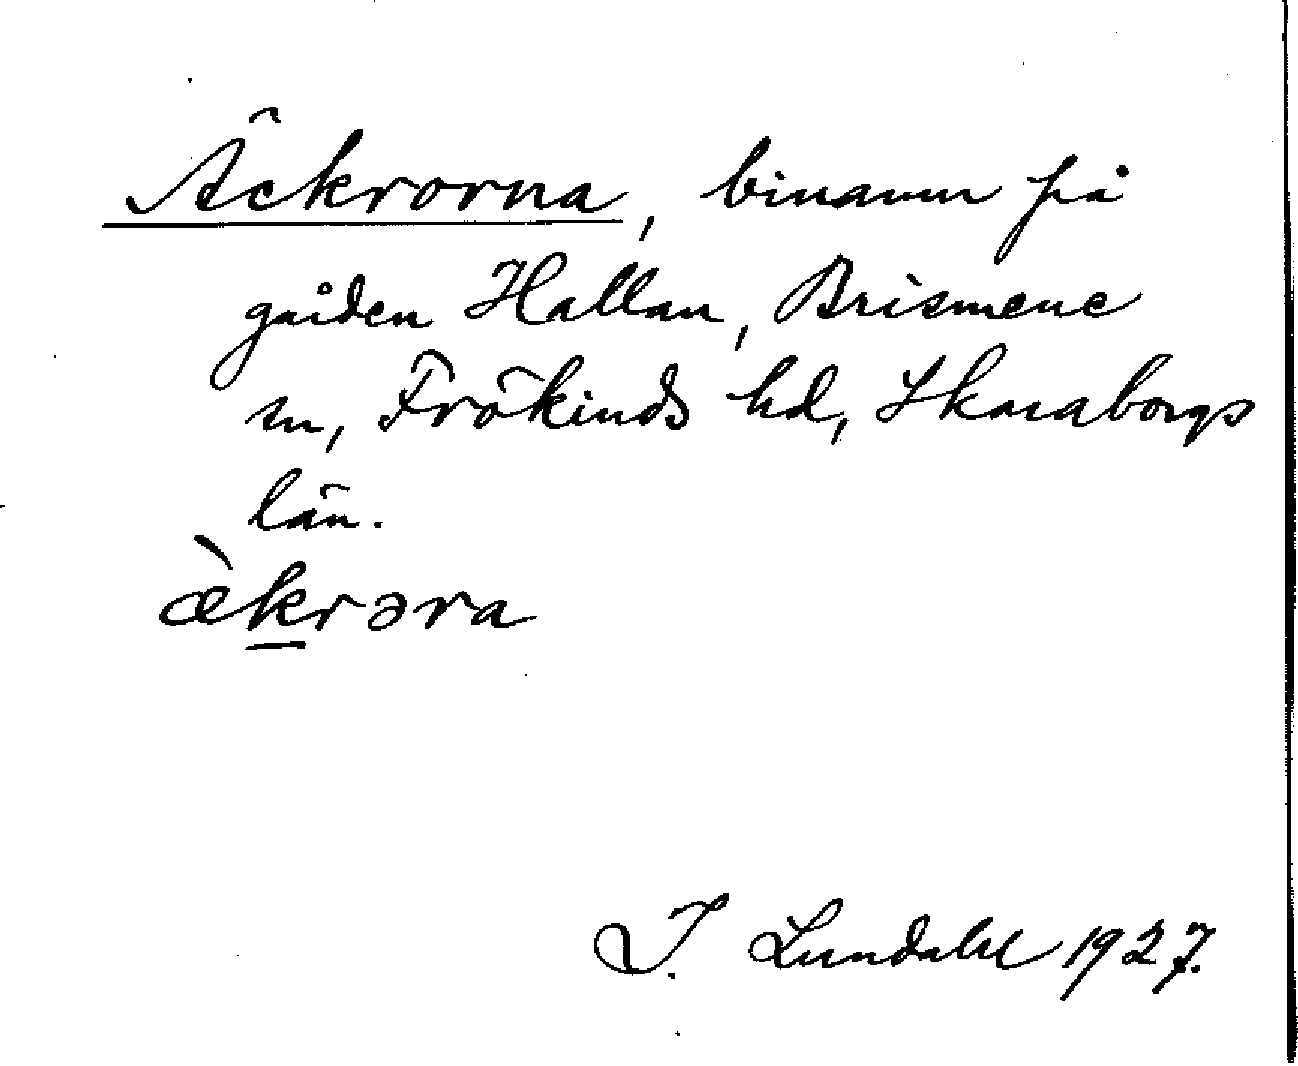 Äckrorna, binamn på
gården Hallan, Brismene
sn, Frökinds hd, Skaraborgs
län.
æ̀k̲rəra
I. Lundahl 1927.